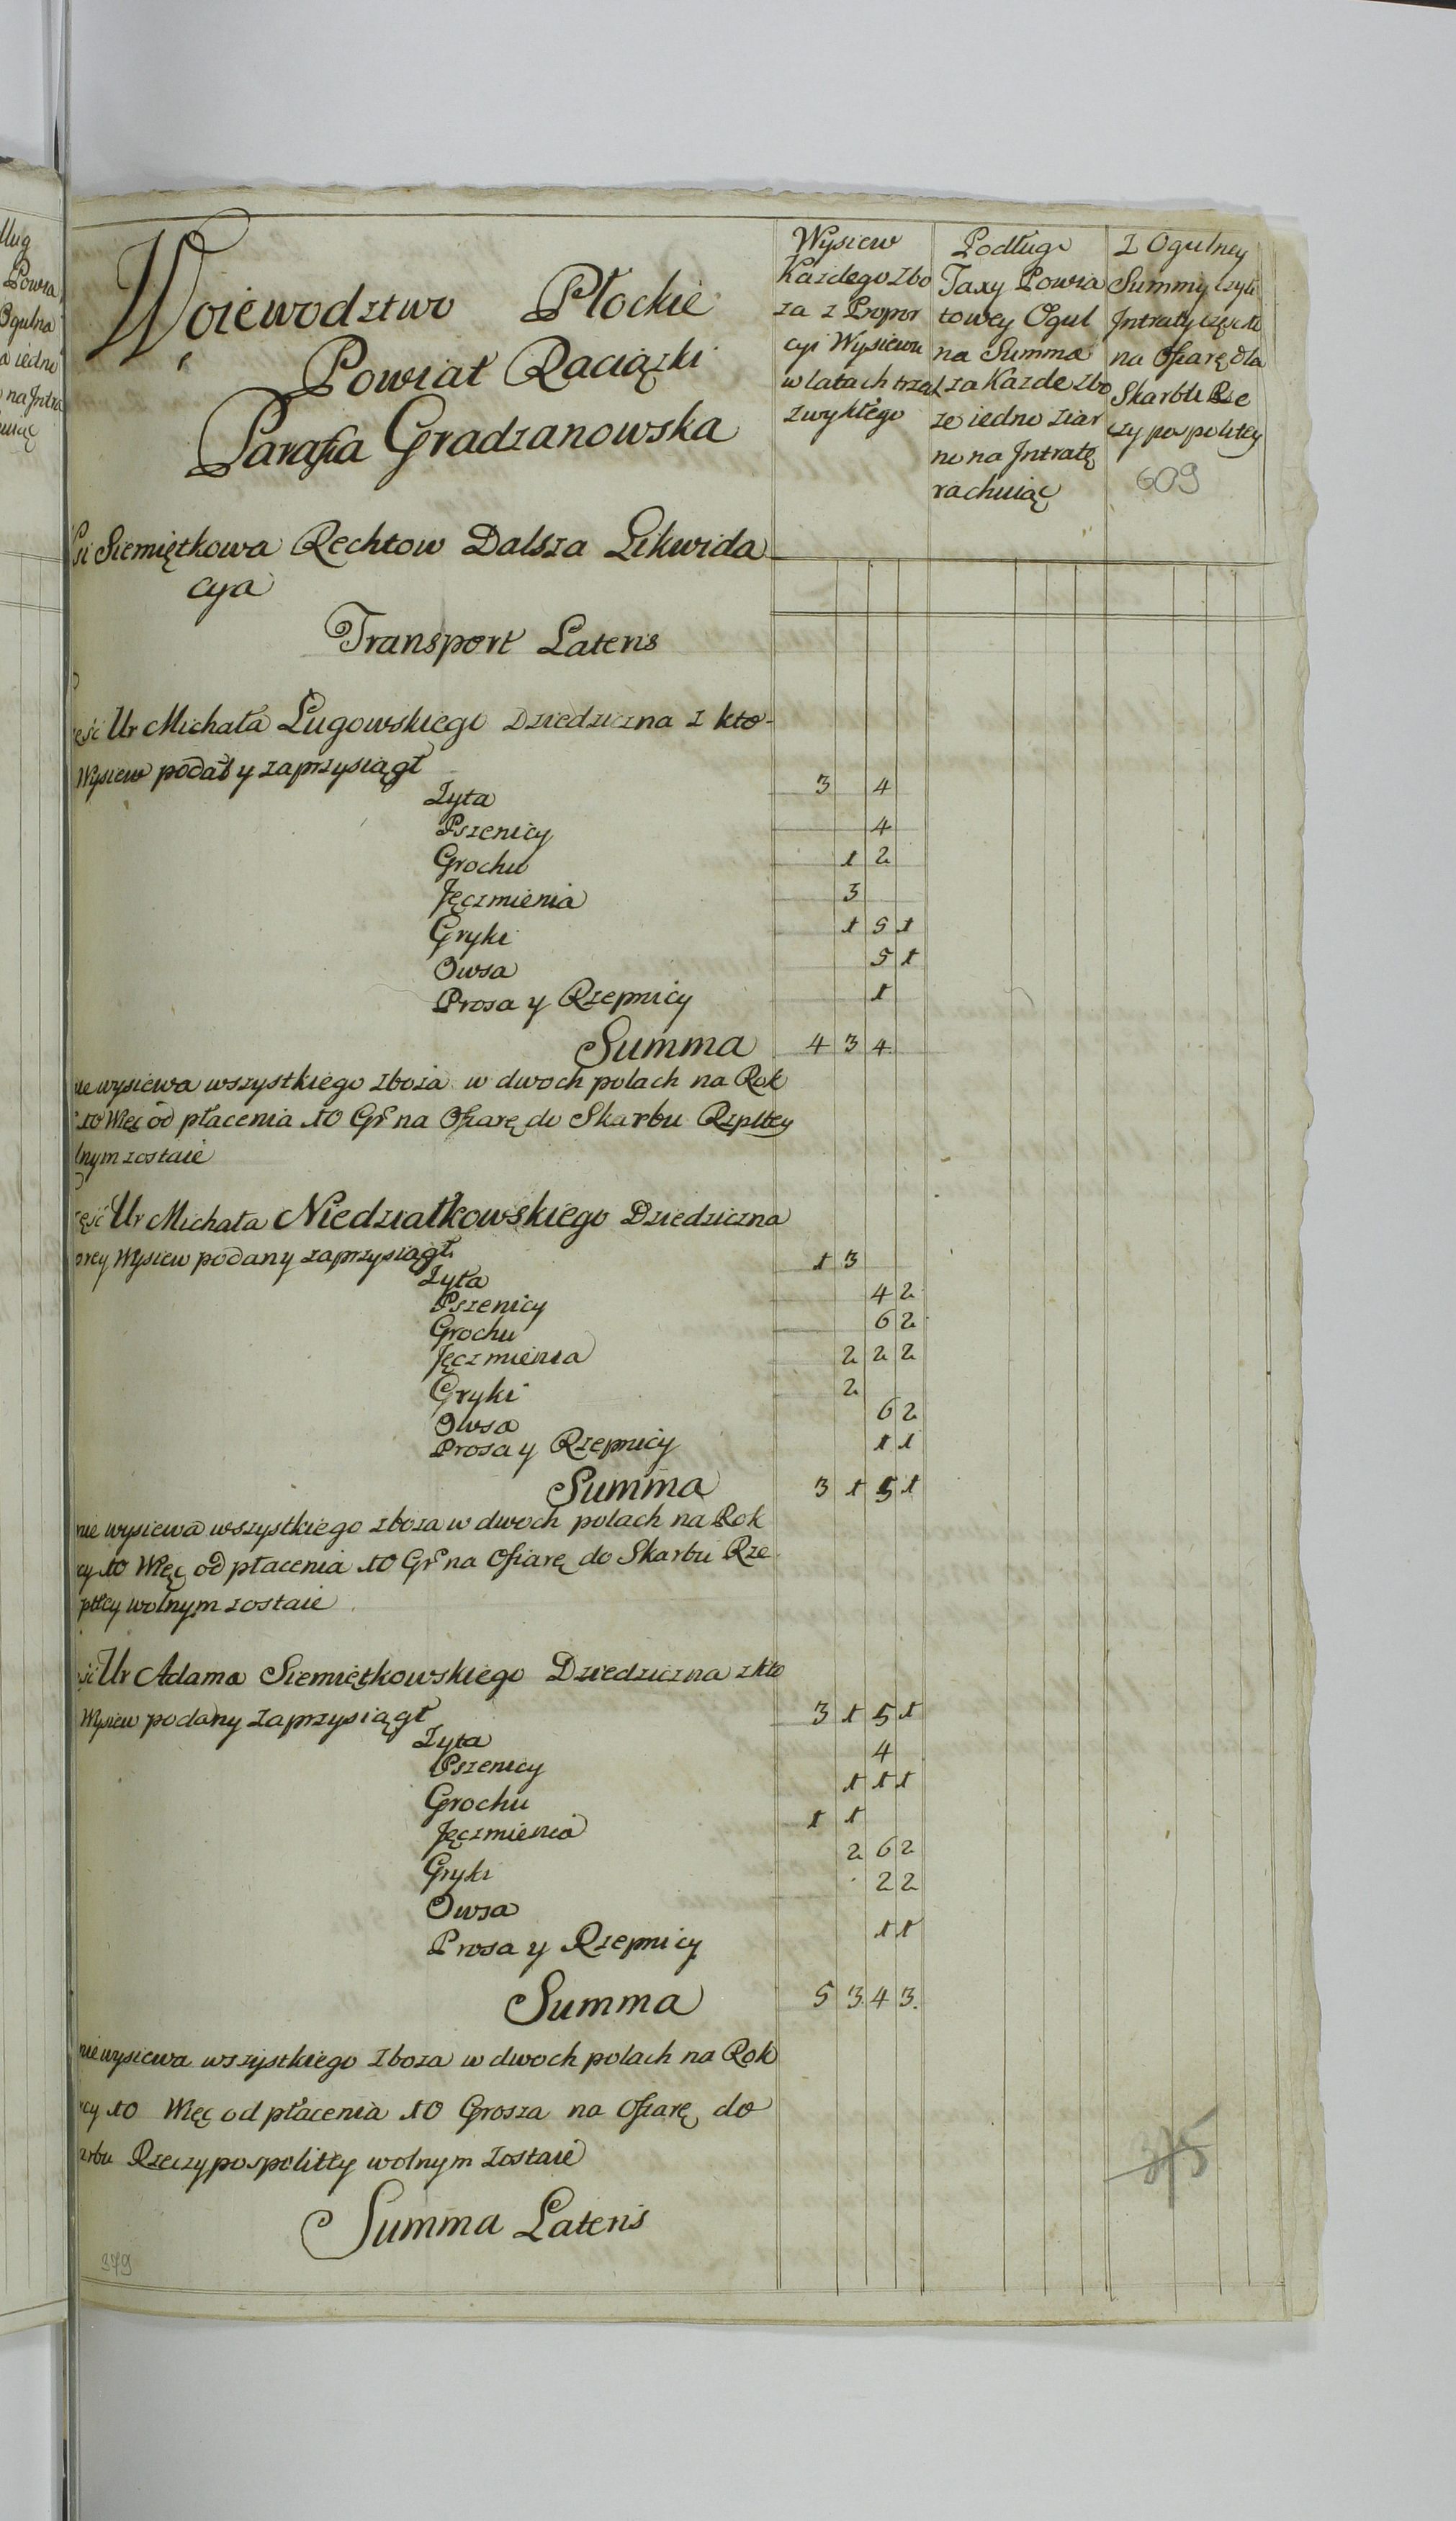 ług
Powia
Ogulna
a iedno
na Intra
Woiewodztwo Płockie
Powiat Raciązki
Parafia Gradzanowska
Wysiew
Kazdego Zbo
za z Propor
cyi Wysiewu
w latach trzech
zwykłego
Podług
Taxy Powia
towey Ogul
na Summa
za Kazde Zbo
ze iedno ziar
no na Intratę
rachuiąc
Z Ogulney
Summy czyli
Intraty część 10
na Ofiarę dla
Skarbu Rze
czypospolitey
609
si Siemiętkowa Rechtow Dalsza Likwida
cya
Transport Lateris
ęść Ur Michała Ługowskiego Dziedziczna z kto-
Wysiew podał y zaprzysiągł
Zyta 3 4
Pszenicy 4
Grochu 1 2
Jęczmienia 3
Gryki 1 5 1
Owsa 5 1
Prosa y Rzepnicy 1
Summa 4 3 4
nie wysiewa wszystkiego zboza w dwoch polach na Rok
10 Więc od płacenia 10 Gr na Ofiarę do Skarbu Rzpltey
lnym zostaie
ęść Ur Michała Niedziałkowskiego Dziedziczna
orey Wysiew podany zaprzysiągł
Zyta 1 3
Pszenicy 4 2
Grochu 6 2
Jęczmienia 2 2 2
Gryki 2
Owsa 6 2
Prosa y Rzepnicy 1 1
Summa 3 1 5 1
nie wysiewa wszystkiego zboza w dwoch polach na Rok
cy 10 Więc od płacenia 10 Gr na Ofiarę do Skarbu Rze
pltcy wolnym zostaie
ść Ur Adama Siemiętkowskiego Dziedziczna z kto
Wysiew podany zaprzysiągł
Zyta 3 1 5 1
Pszenicy 4
Grochu 1 1 1
Jęczmienia 1 1
Gryki 2 6 2
Owsa 2 2
Prosa y Rzepnicy 1 1
Summa 5 3 4 3
nie wysiewa wszystkiego zboza w dwoch polach na Rok
cy 10 Więc od płacenia 10 Grosza na Ofiarę do
arbu Rzeczypospolitey wolnym zostaie
375
Summa Lateris
379